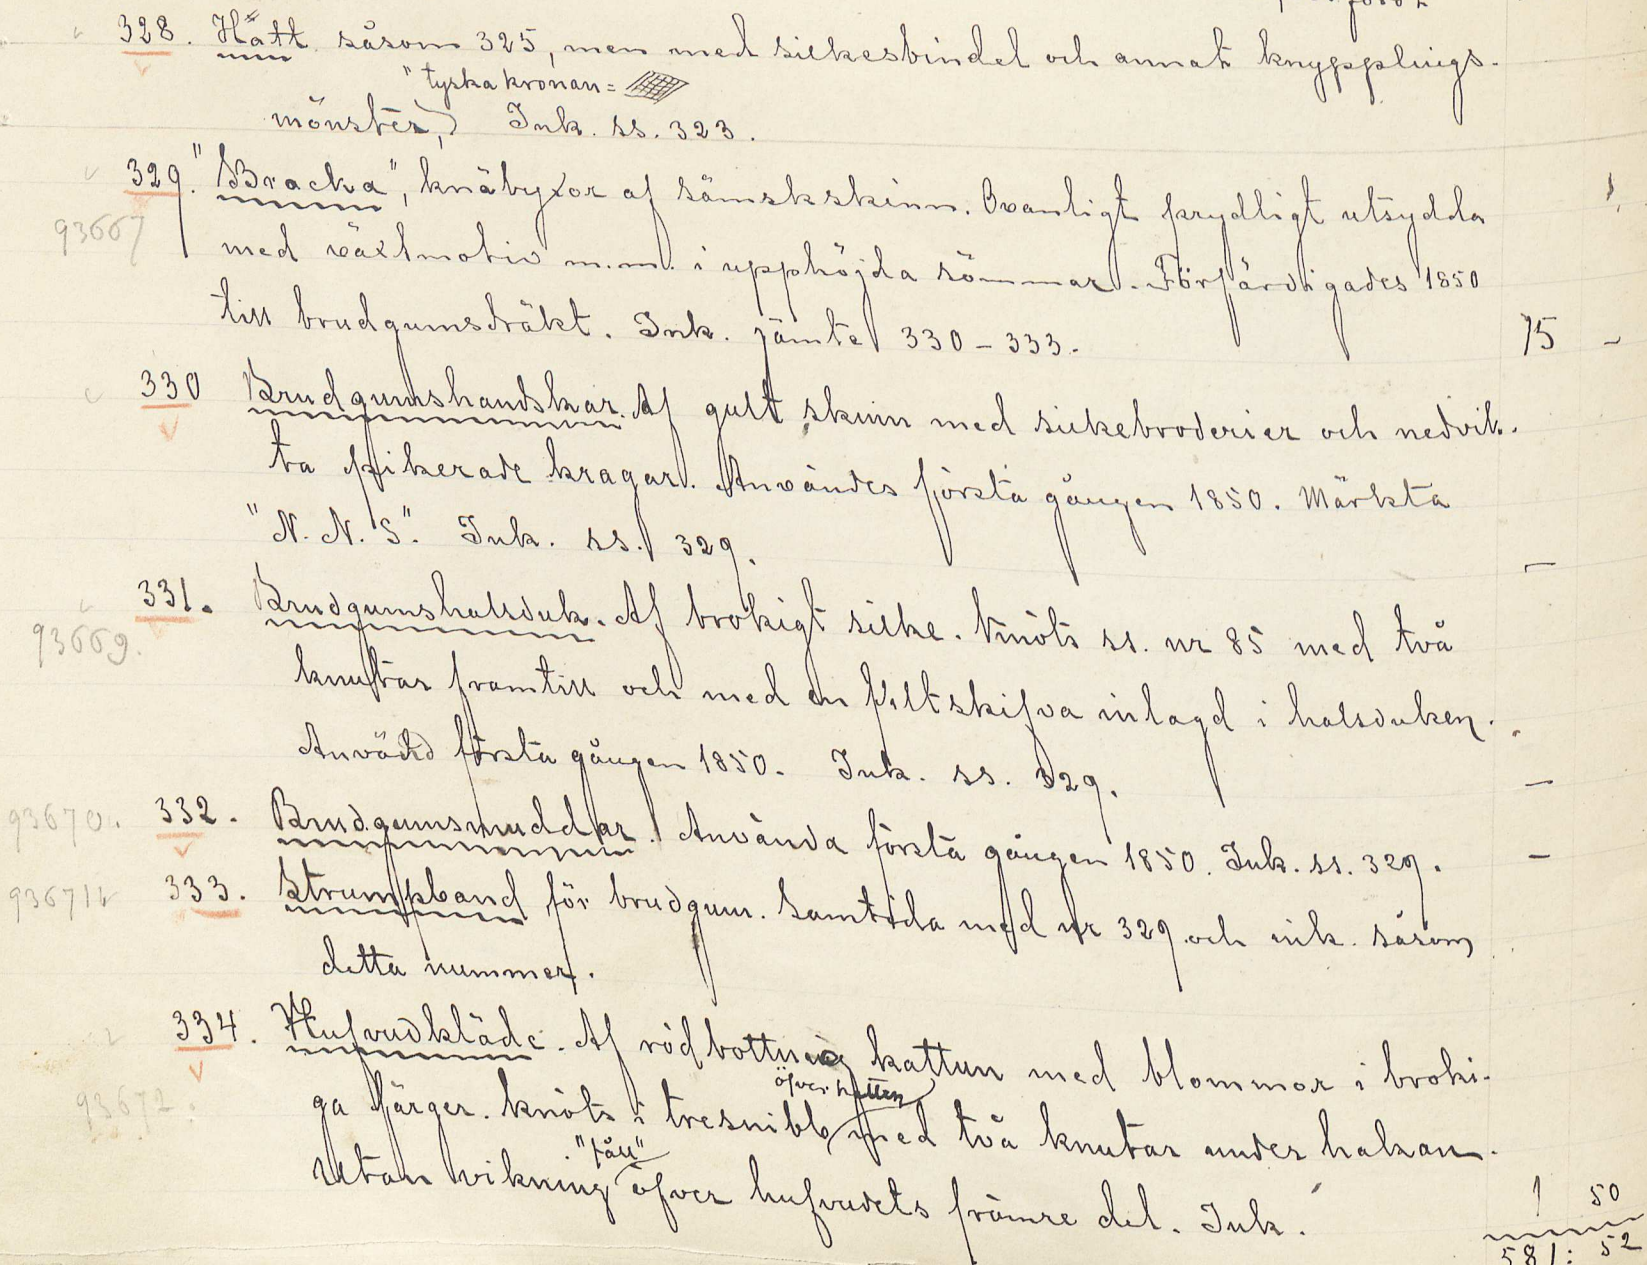 328. Hätt såsom 325, men med silkesbindel och annat knypplings-
"tyska kronan =
mönster, Ink. ss. 323.
329. "Bracka", knäbyxor af sämskskinn. Ovanligt prydligt utsydda
93667
med växtmotiv m.m. i upphöjda sömmar. Förfärdigades 1850
till brudgumsdräkt. Ink. jämte 330 – 333. 75 –
330 Brudgumshandskar. Af gult skinn med silkebroderier och nedvik-
ta pikerade kragar. Användes första gången 1850. Märkta
"N. N. S." Ink. ss. 329. –
331. Brudgumshalsduk. Af brokigt silke. Knöts ss. nr 85 med två
93669.
knutar framtill och med en filtskifva inlagd i halsduken.
Använd första gången 1850. Ink. ss. 329. –
93670. 332. Brudgumsmuddar. Använda första gången 1850. Ink. ss. 329. –
93671 333. Strumpband för brudgum. Samtida med nr 329 och ink. såsom
detta nummer.
334. Hufvudkläde. Af rödbottnig kattun med blommor i broki-
93672. öfver hätten
ga färger. Knöts i tresnibb med två knutar under hakan.
"fåll"
Utan vikning öfver hufvudets främre del. Ink. 1 50
581: 52